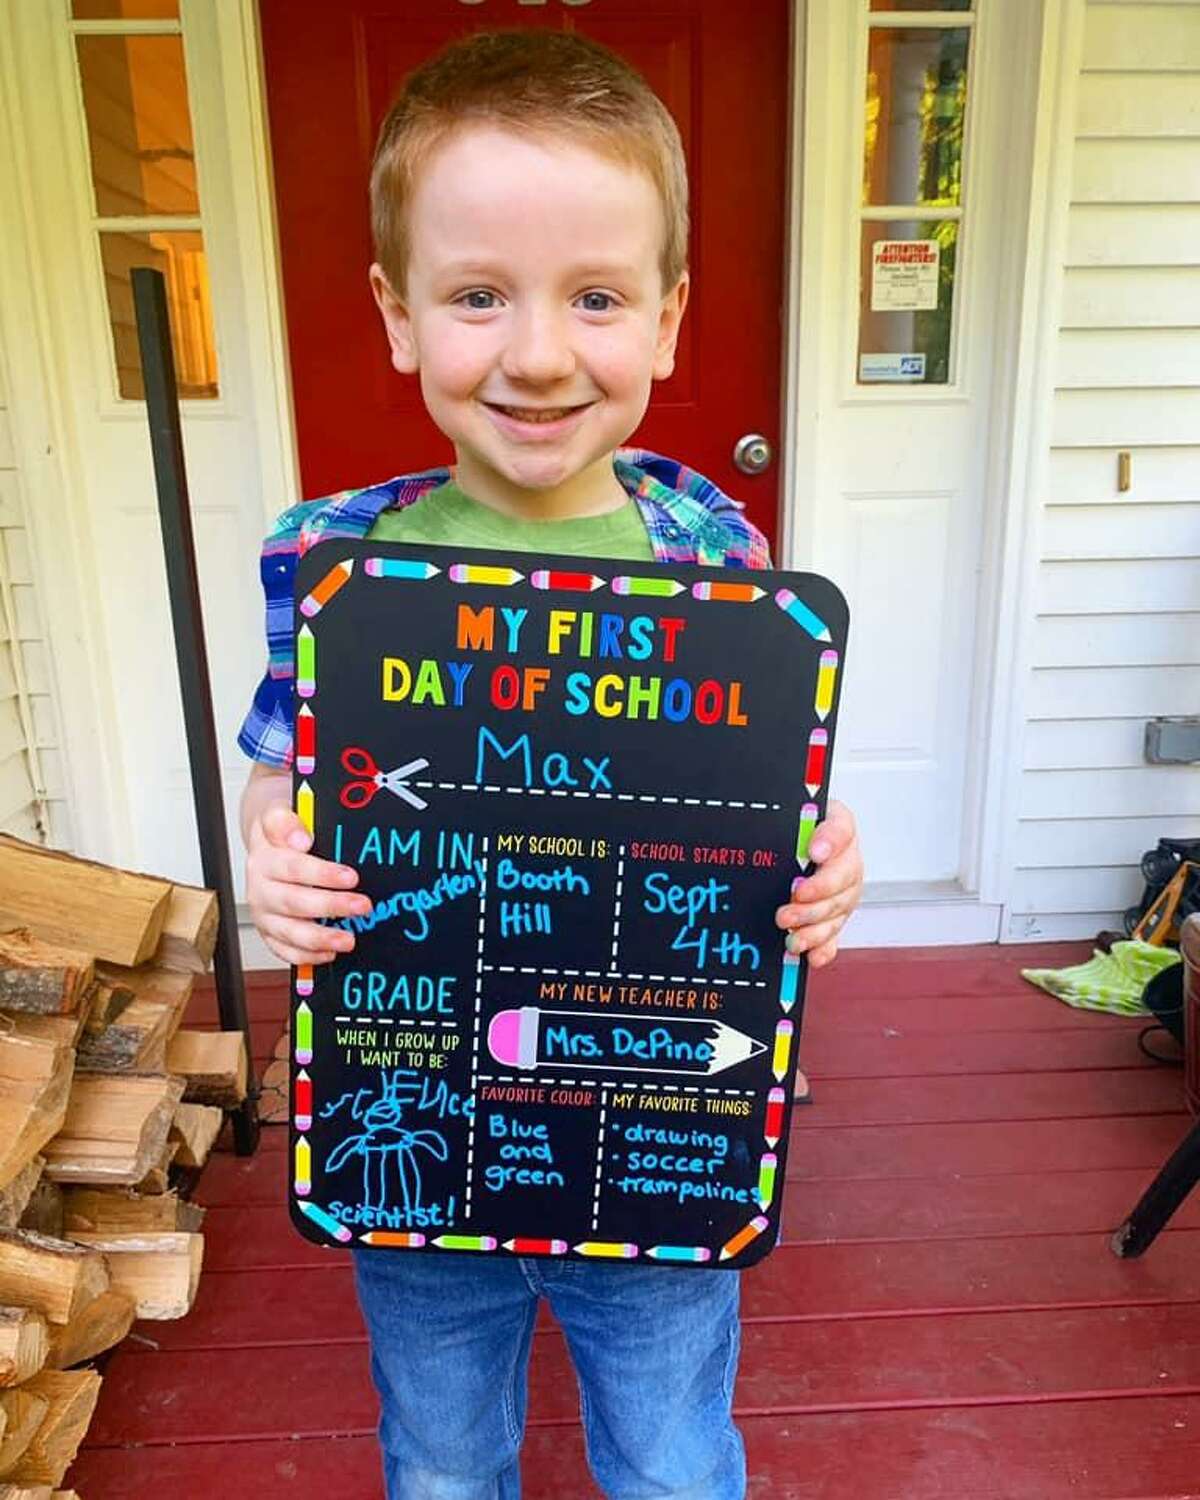 ATTENTION
FIREFIGHTERS!
Please save my
ADT
MY FIRST
DAY OF SCHOOL
Max
I AM IN
Kindergarten!
GRADE
MY SCHOOL IS:
Booth
Hill
SCHOOL STARTS ON:
Sept.
4th
MY NEW TEACHER IS:
Mrs. DePino
WHEN I GROW UP
I WANT TO BE:
scientist!
FAVORITE COLOR:
Blue
and
green
MY FAVORITE THINGS:
• drawing
• soccer
• trampolines